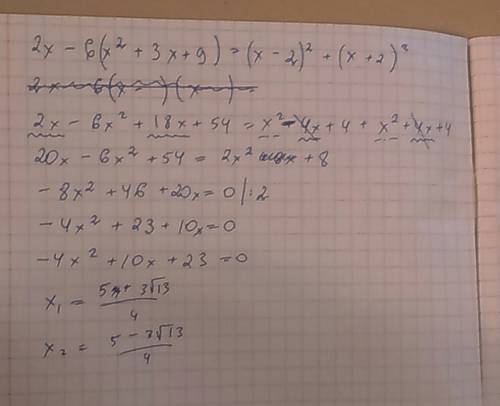 2x - 6(x² + 3x + 9) = (x - 2)² + (x + 2)²
2x - 6(x )(x ) =
2x - 6x² + 18x + 54 = x² - 4x + 4 + x² + 4x + 4
20x - 6x² + 54 = 2x² + 8
- 8x² + 46 + 20x = 0 |:2
- 4x² + 23 + 10x = 0
- 4x² + 10x + 23 = 0
x₁ = (5 + 3√13)/4
x₂ = (5 - 3√13)/4